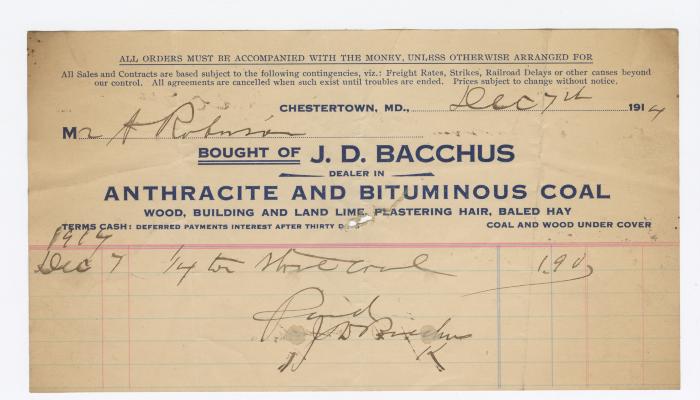 ALL ORDERS MUST BE ACCOMPANIED WITH THE MONEY, UNLESS OTHERWISE ARRANGED FOR
All Sales and Contracts are based subject to the following contingencies, viz.: Freight Rates, Strikes, Railroad Delays or other causes beyond
our control. All agreements are cancelled when such exist until troubles are ended. Prices subject to change without notice.
CHESTERTOWN, MD., Dec 7th 1914
Mr A Robinson
BOUGHT OF J. D. BACCHUS
DEALER IN
ANTHRACITE AND BITUMINOUS COAL
WOOD, BUILDING AND LAND LIME, PLASTERING HAIR, BALED HAY
TERMS CASH: DEFERRED PAYMENTS INTEREST AFTER THIRTY D COAL AND WOOD UNDER COVER
1914
Dec 7 1/4 ton Stove Coal 1.90
Paid
J D Bacchus
K